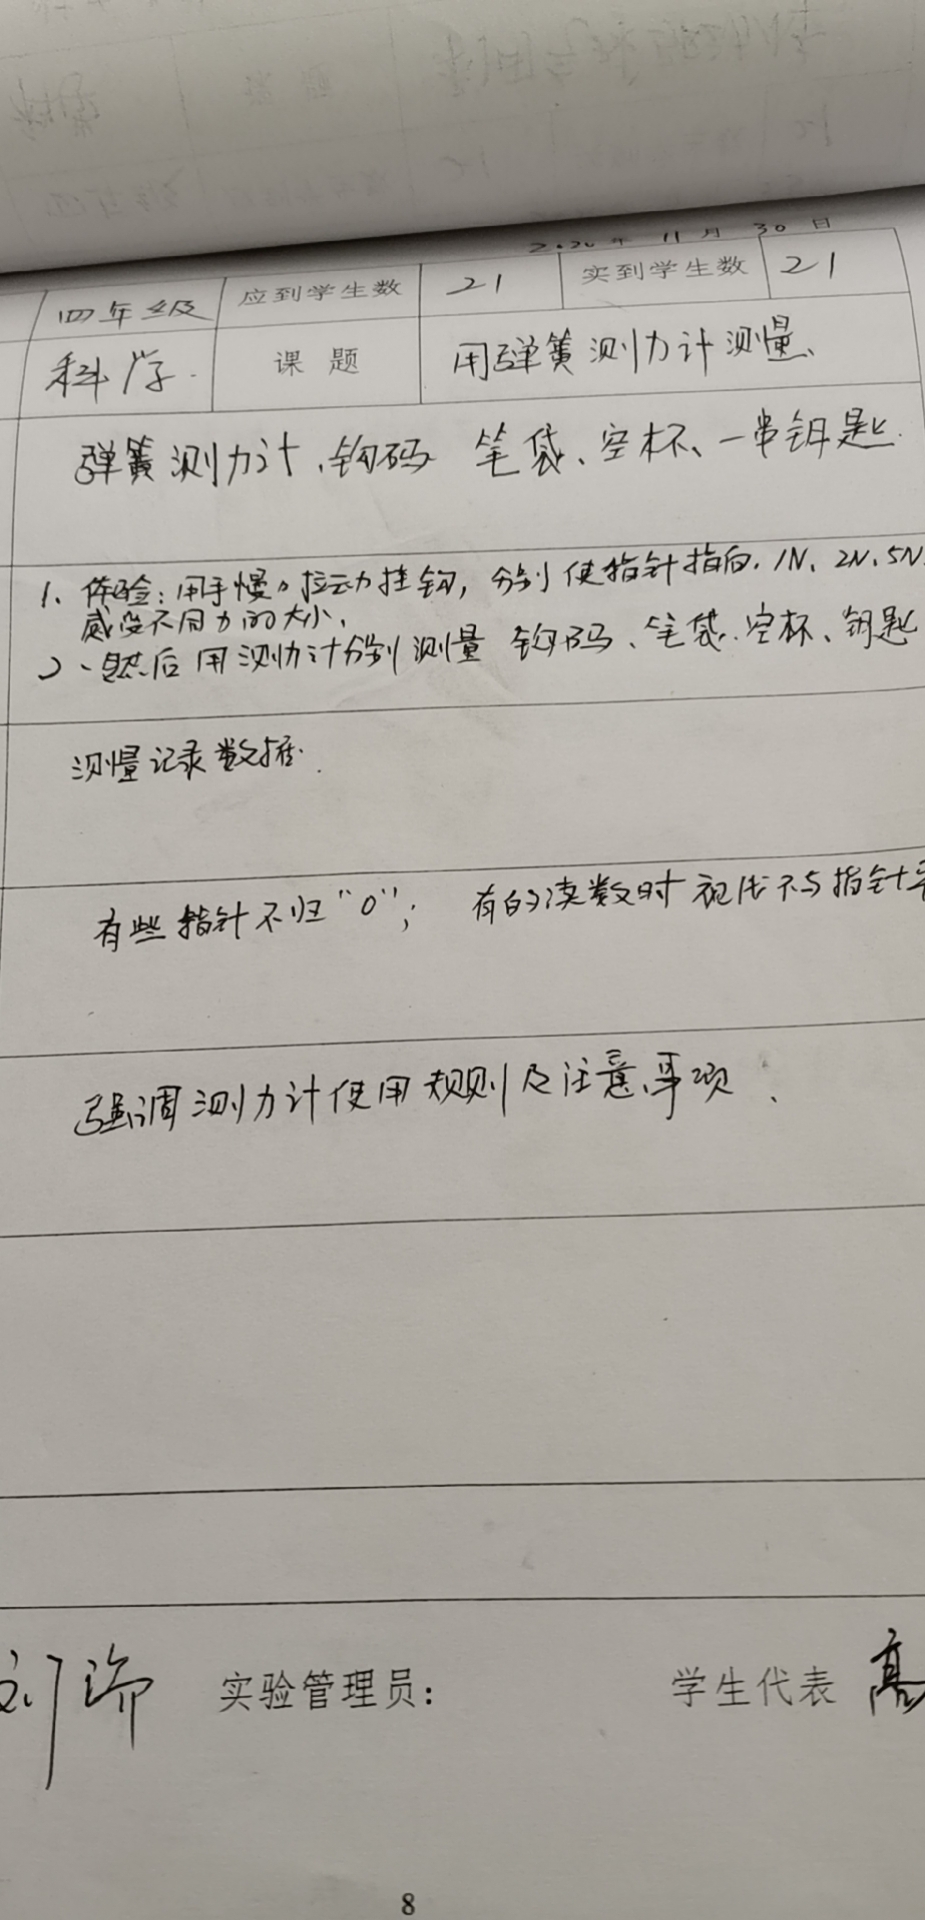 2020年 11月 30日
四年级 应到学生数 21 实到学生数 21
科学. 课题 用弹簧测力计测量、
弹簧测力计、钩码 笔袋、空杯、一串钥匙.
1、体验:用手慢々拉动挂钩,分别使指针指向.1N、2N、5N.
感受不同力的大小、
2、然后用测力计分别测量 钩码、笔袋、空杯、钥匙
测量记录数据.
有些指针不归“0”; 有的读数时视线不与指针平
强调测力计使用规则及注意事项、
刘 实验管理员: 学生代表 高
8